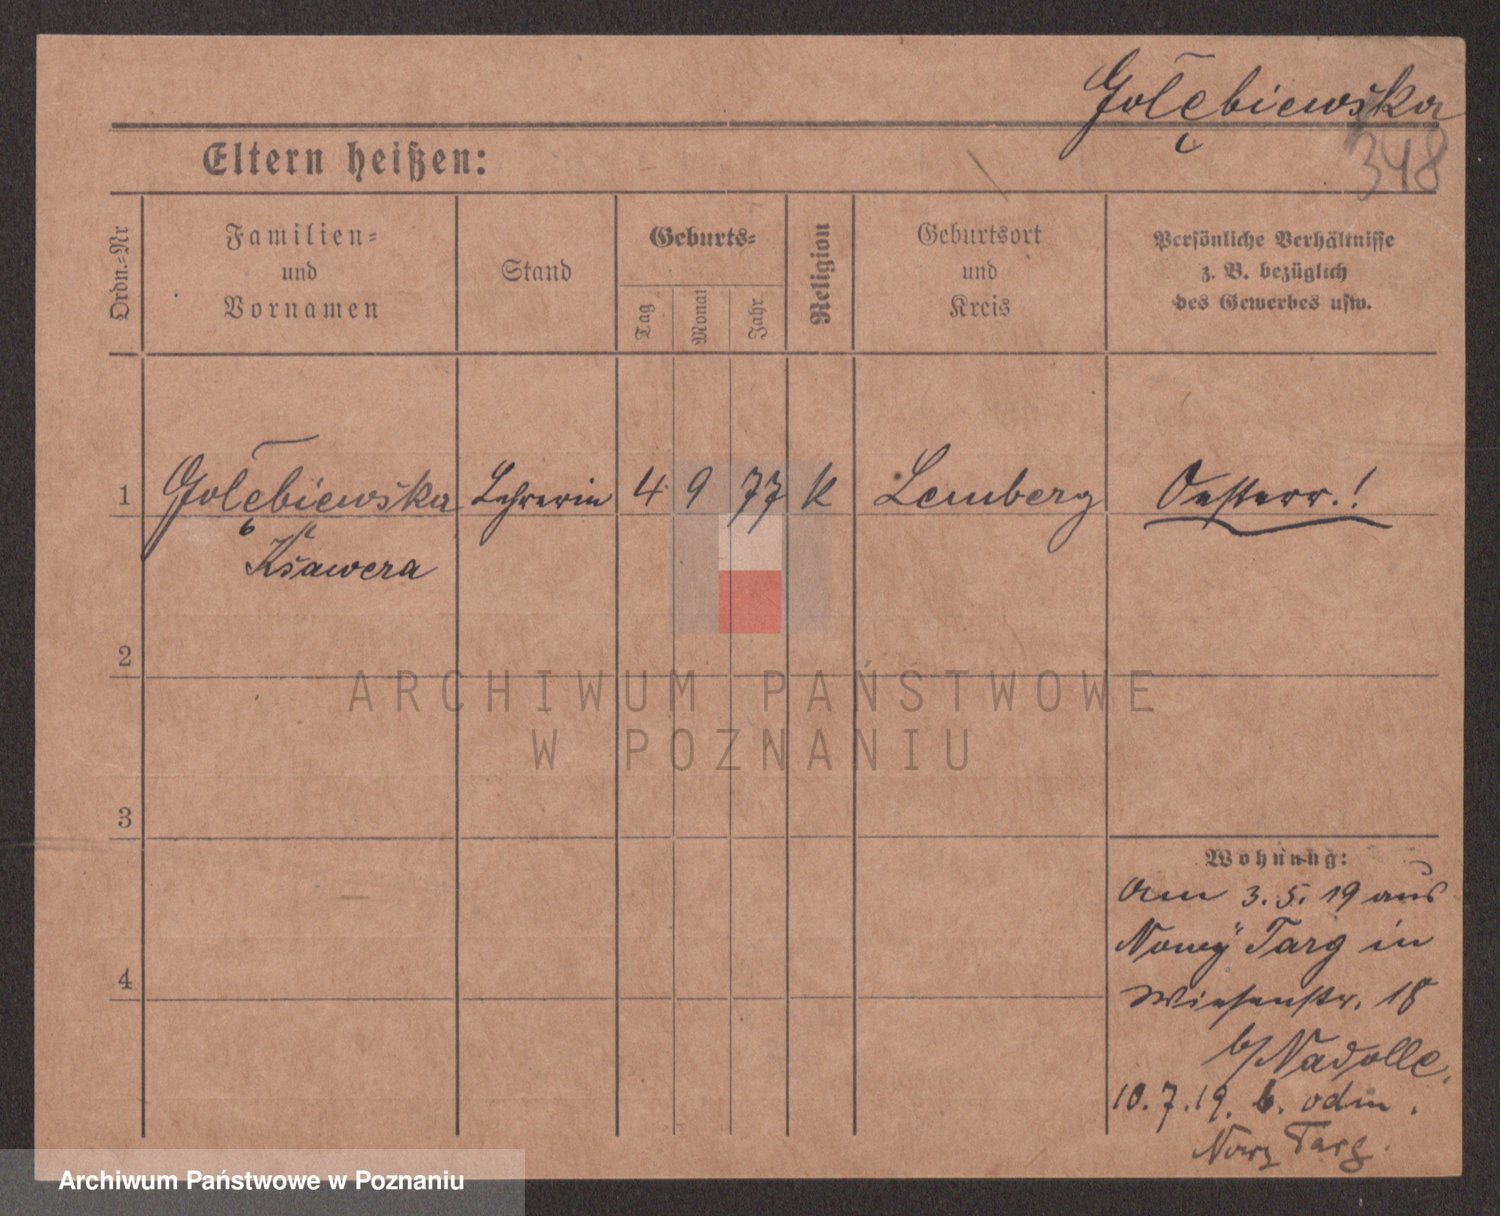 Gołębiewska
348
Eltern heißen:
Ordn.=Nr
Familien=
und
Vornamen
Stand
Geburts=
Tag
Monat
Jahr
Religion
Geburtsort
und
Kreis
Persönliche Verhältnisse
z. B. bezüglich
des Gewerbes usw.
1 Gołębiewska Lehrerin 4 9 77 K Lemberg Oesterr.!
Ksawera
2
3
4
Wohnung:
Am 3.5.19 aus
Nowy Targ in
Wiesenstr. 18
b/Nadolle.
10.7.19. odm.
Nowy Targ.
ARCHIWUM PAŃSTWOWE
W POZNANIU
Archiwum Państwowe w Poznaniu